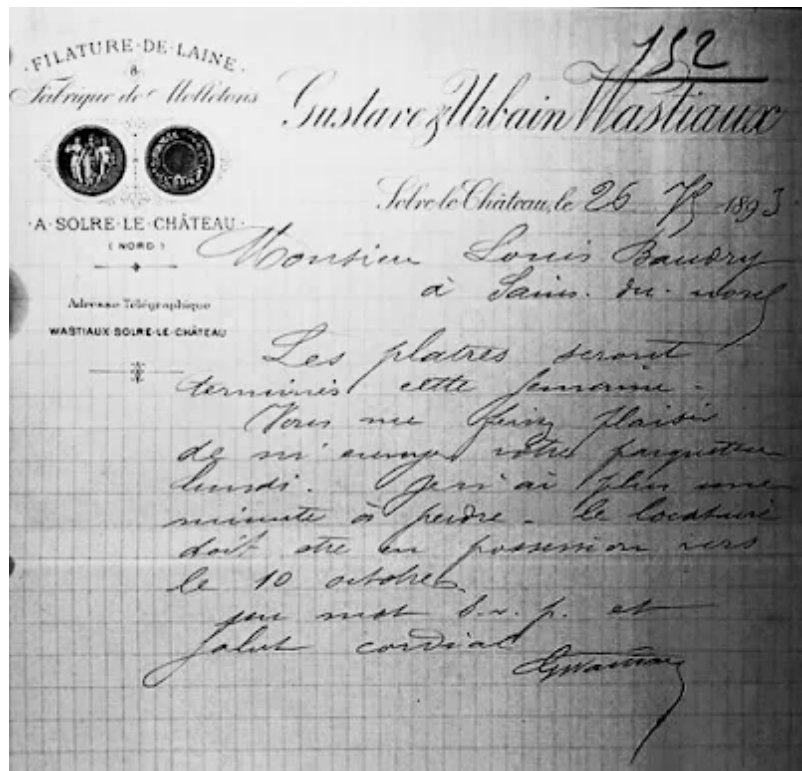 152
·FILATURE·DE·LAINE·
&
Fabrique de Molletons
Gustave & Urbain Wastiaux
·A·SOLRE·LE·CHÂTEAU·
(NORD)
Adresse Télégraphique
WASTIAUX SOLRE-LE-CHÂTEAU
Solre-le-Château, le 26 7S 1893.
Monsieur Louis Baudry
à Sains-du-nord
Les platres seront
terminés cette semaine -
Vous me feriez plaisir
de m'envoyer votre parqueteur
lundi. Je n'ai plus une
minute à perdre - le locataire
doit etre en possession vers
le 10 octobre
un mot s.v.p. et
salut cordial
GWastiaux